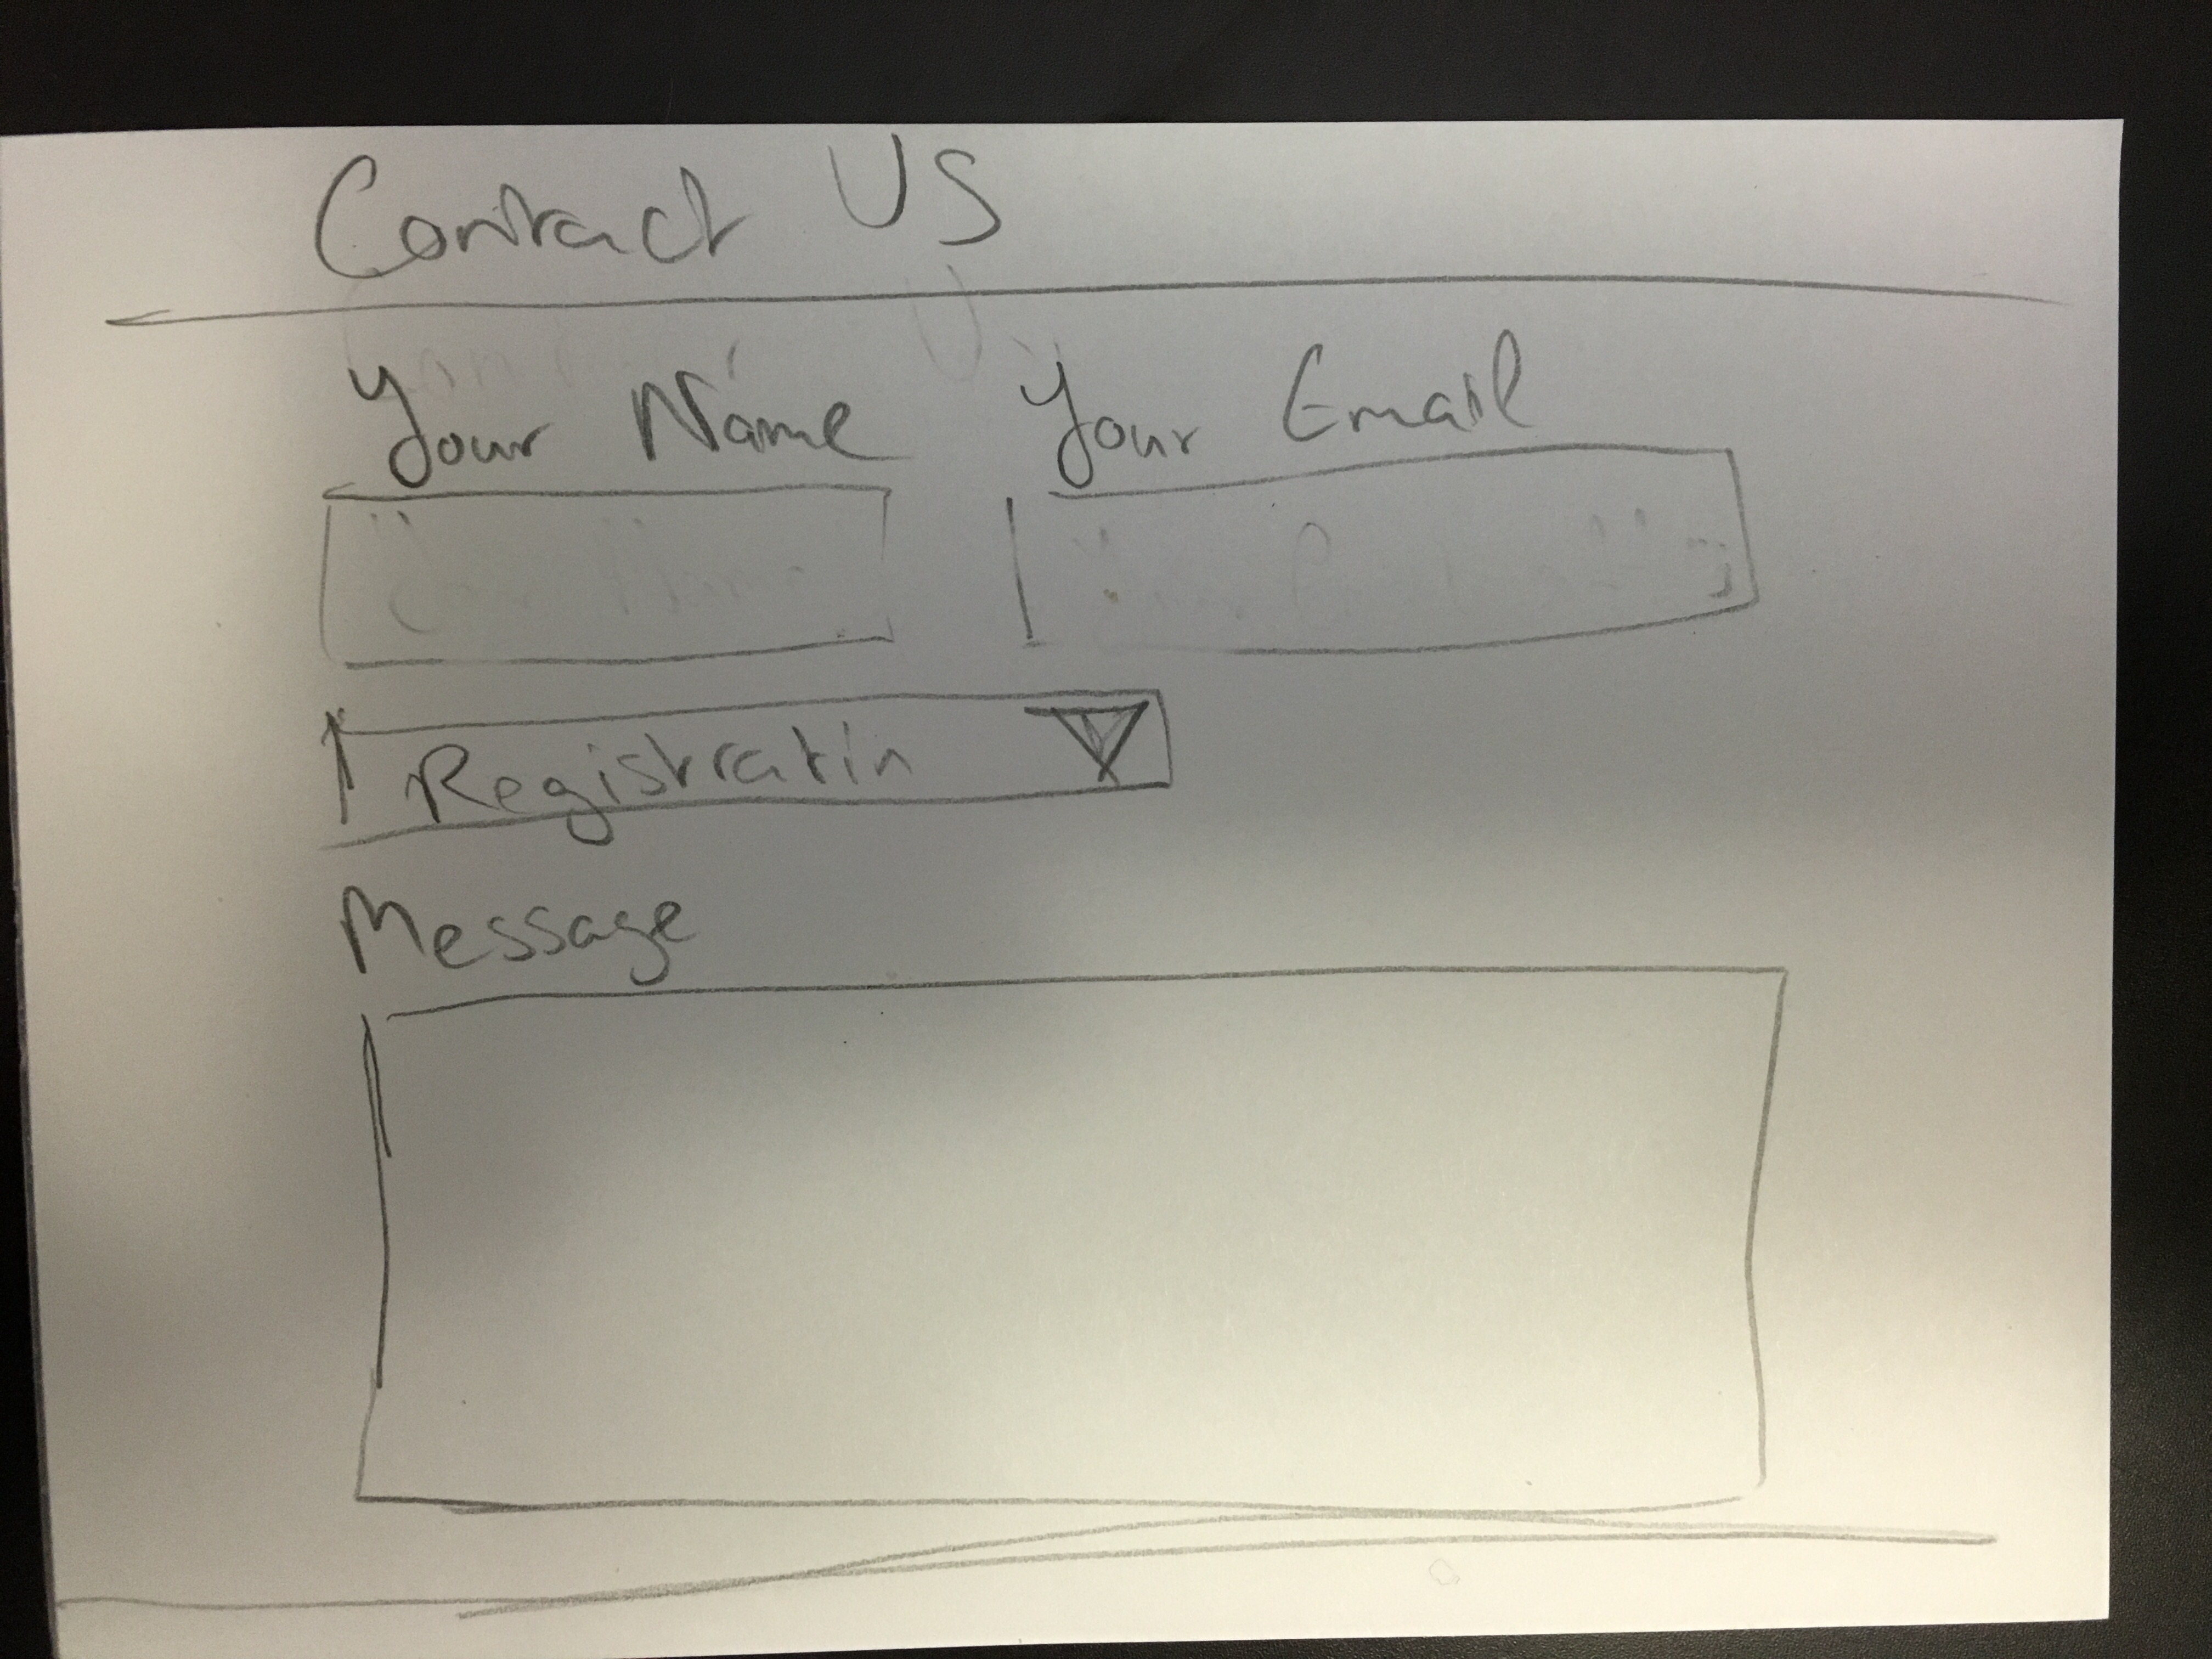 Contact US
your Name your Email
Registratin
Message